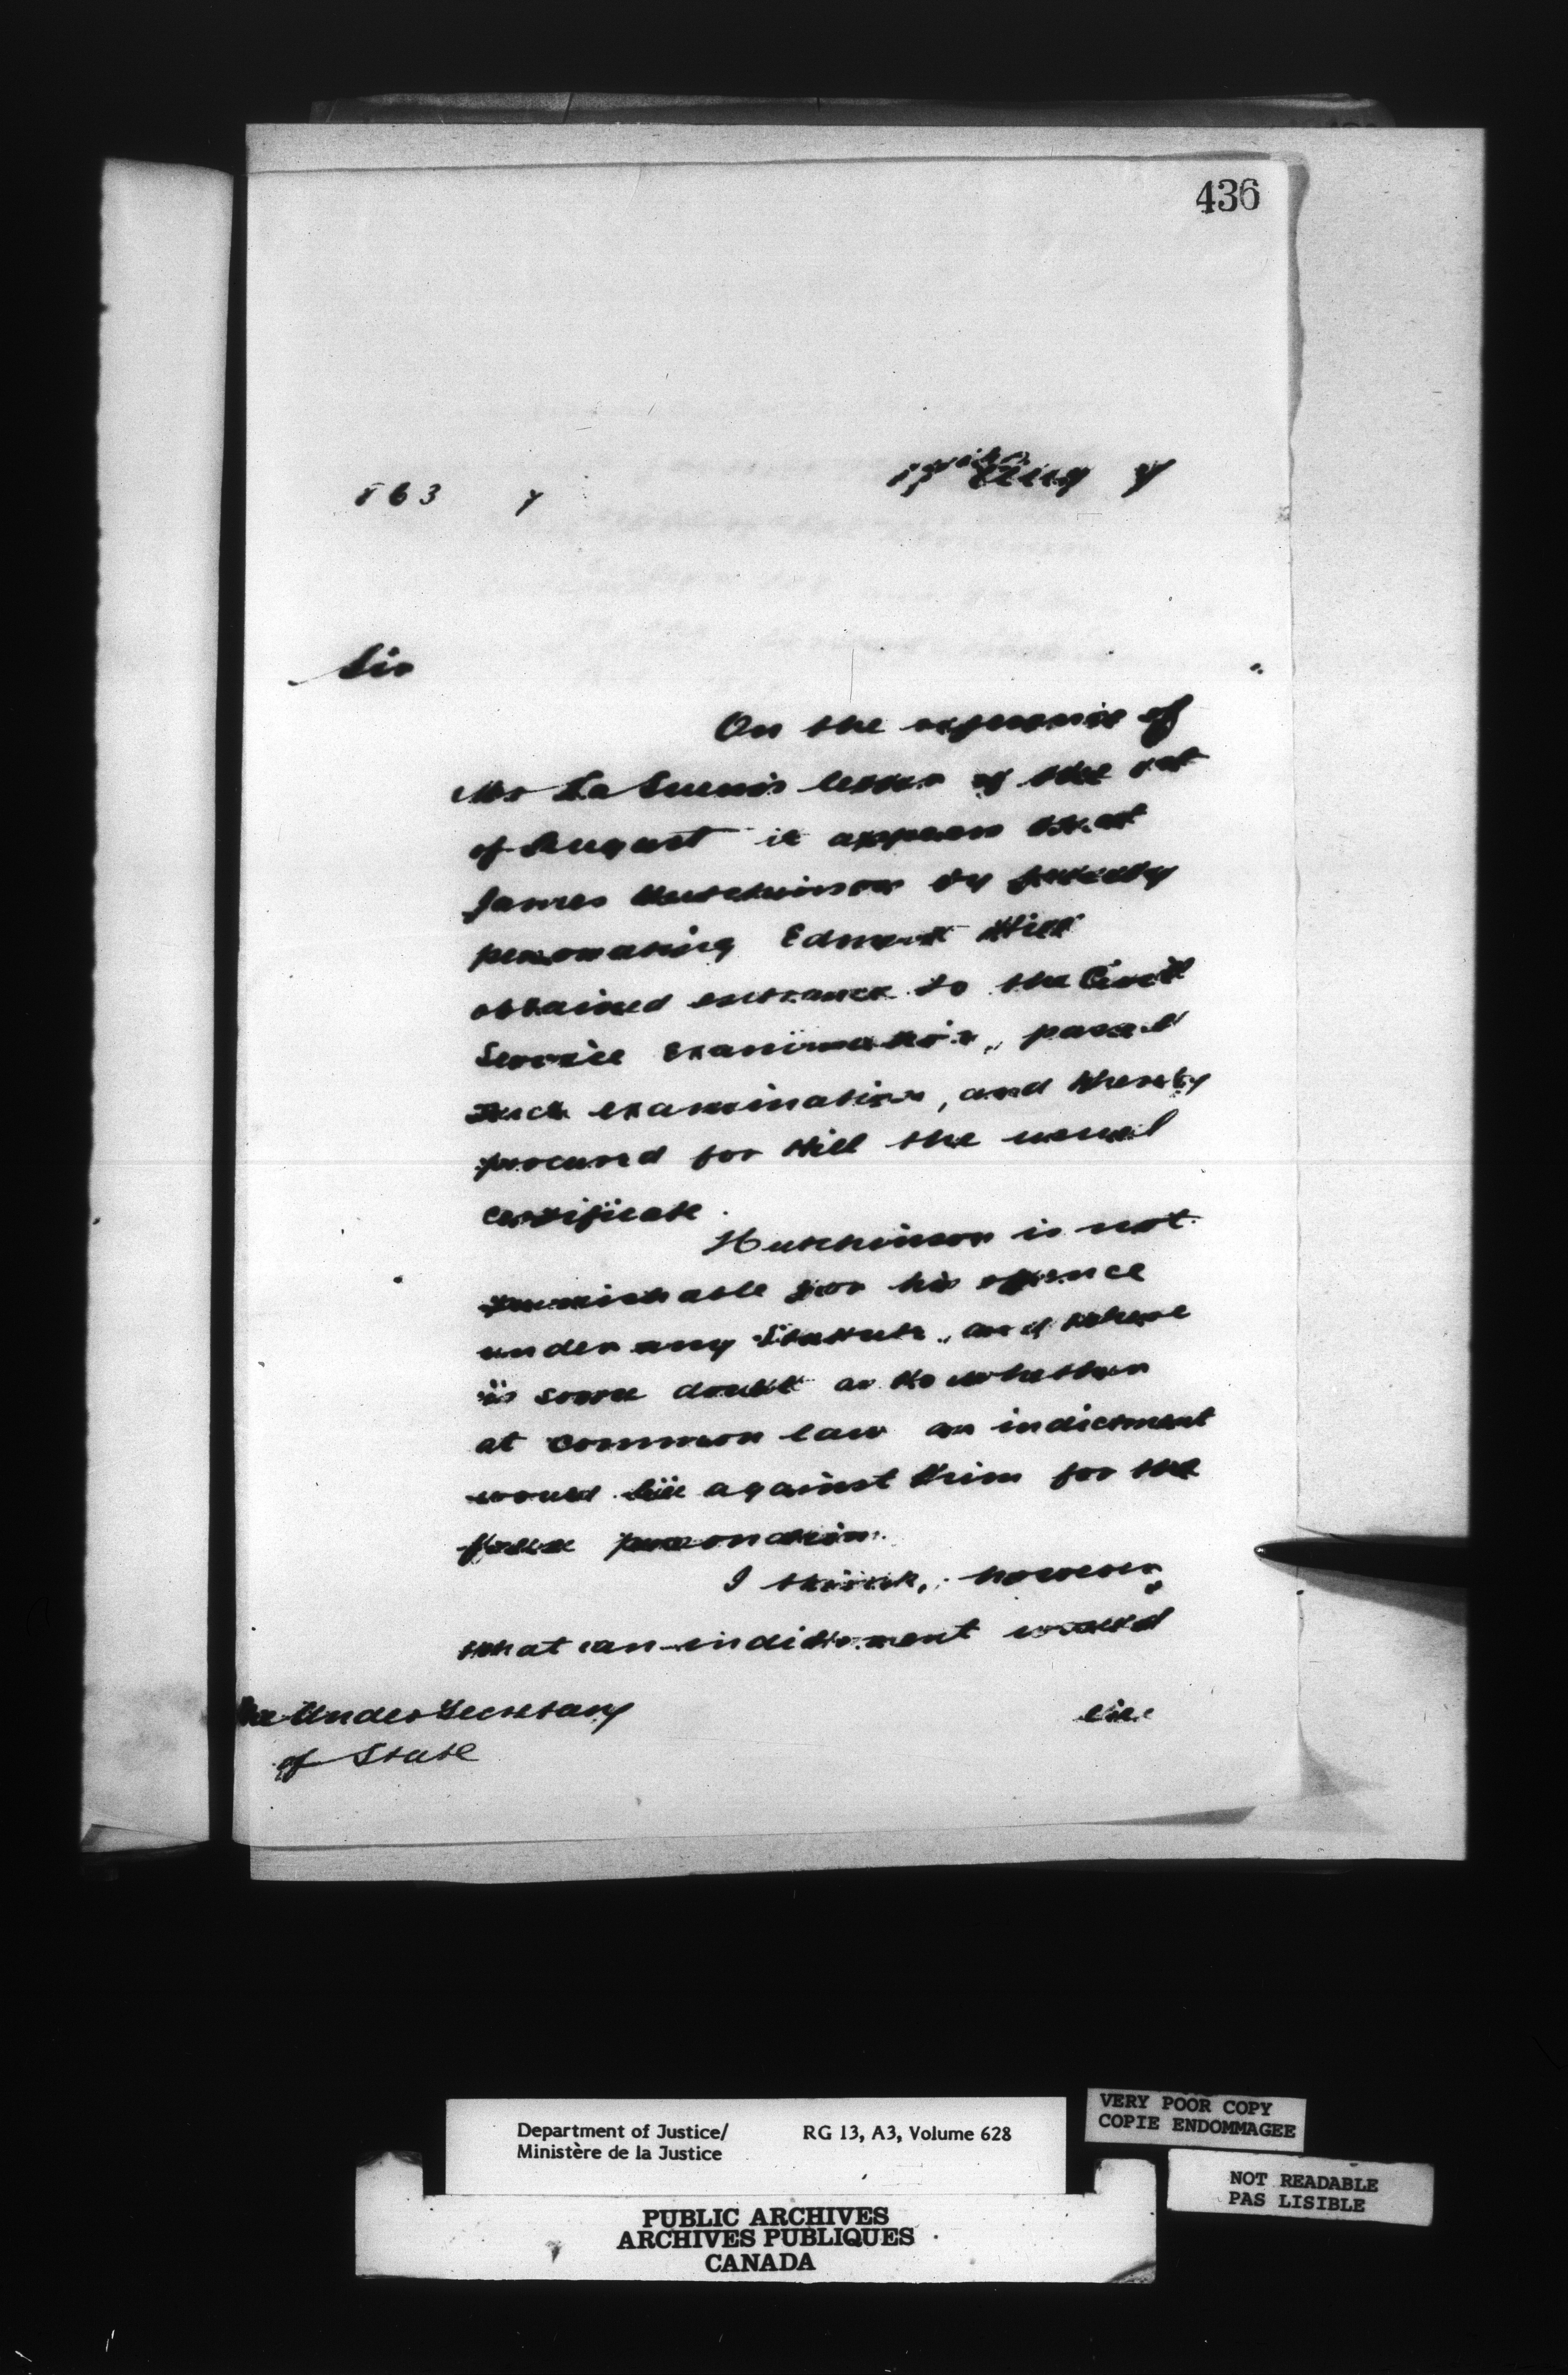 436
863 7
17th Aug 7
Sir
On the reference of
Mr Le Sueur's letter of the 1st
of August it appears that
James Hutchinson by falsely
personating Edmund Hill
obtained entrance to the Civil
Service Examination, passed
such examination, and thereby
procured for Hill the usual
certificate.
Hutchinson is not
punishable for his offence
under any Statute, and there
is some doubt as to whether
at common law an indictment
would lie against him for the
false personation.
I think, however,
that an indictment would
The Under Secretary
of State
lie
Department of Justice/
Ministère de la Justice
RG 13, A3, Volume 628
PUBLIC ARCHIVES
ARCHIVES PUBLIQUES
CANADA
VERY POOR COPY
COPIE ENDOMMAGEE
NOT READABLE
PAS LISIBLE